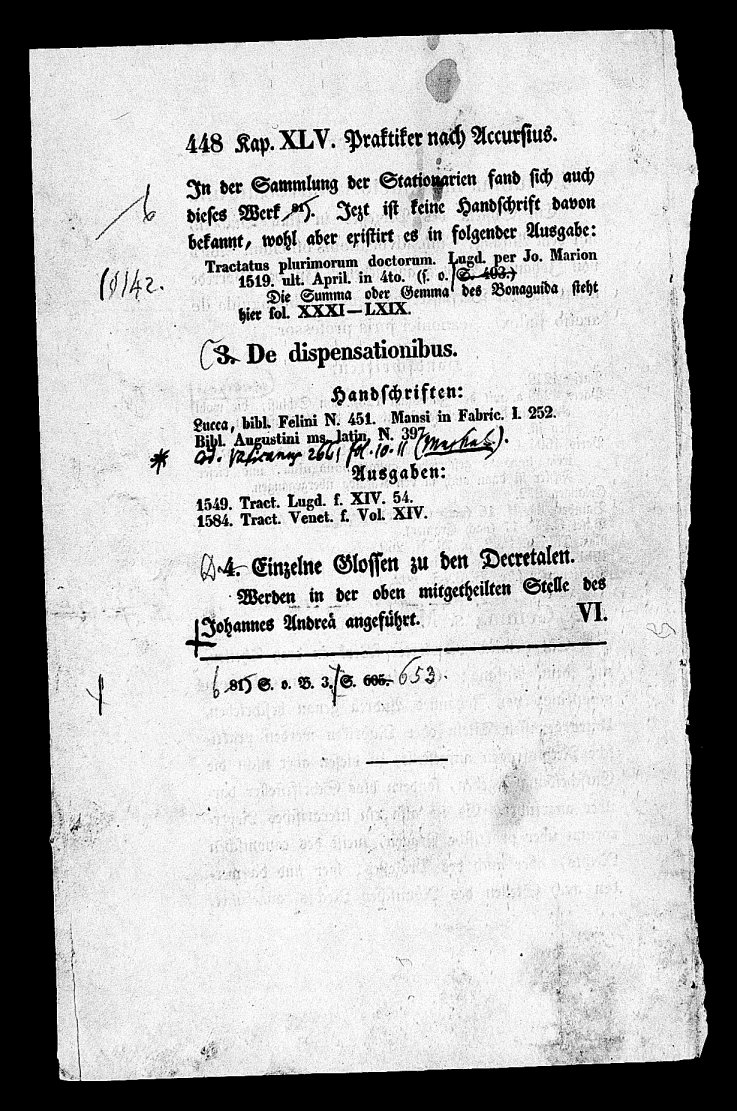 448 Kap. XLV. Praktiker nach Accursius.
In der Sammlung der Stationarien fand sich auch
b dieses Werk 81). Jezt ist keine Handschrift davon
bekannt, wohl aber existirt es in folgender Ausgabe:
Tractatus plurimorum doctorum. Lugd. per Jo. Marion
142. 1519. ult. April. in 4to. (s. o. S. 403.)
Die Summa oder Gemma des Bonaguida, steht
hier fol. XXXI—LXIX.
C 3. De dispensationibus.
Handschriften:
Lucca, bibl. Felini N. 451. Mansi in Fabric. I. 252.
Bibl. Augustini ms. latin. N. 397.
* Cod. Vatican. 2661 fol. 10. 11
Ausgaben:
1549. Tract. Lugd. f. XIV. 54.
1584. Tract. Venet. f. Vol. XIV.
D. 4. Einzelne Glossen zu den Decretalen.
Werden in der oben mitgetheilten Stelle des
Johannes Andreä angeführt. VI.
b 81) S. o. B. 3. S. 605. 653.